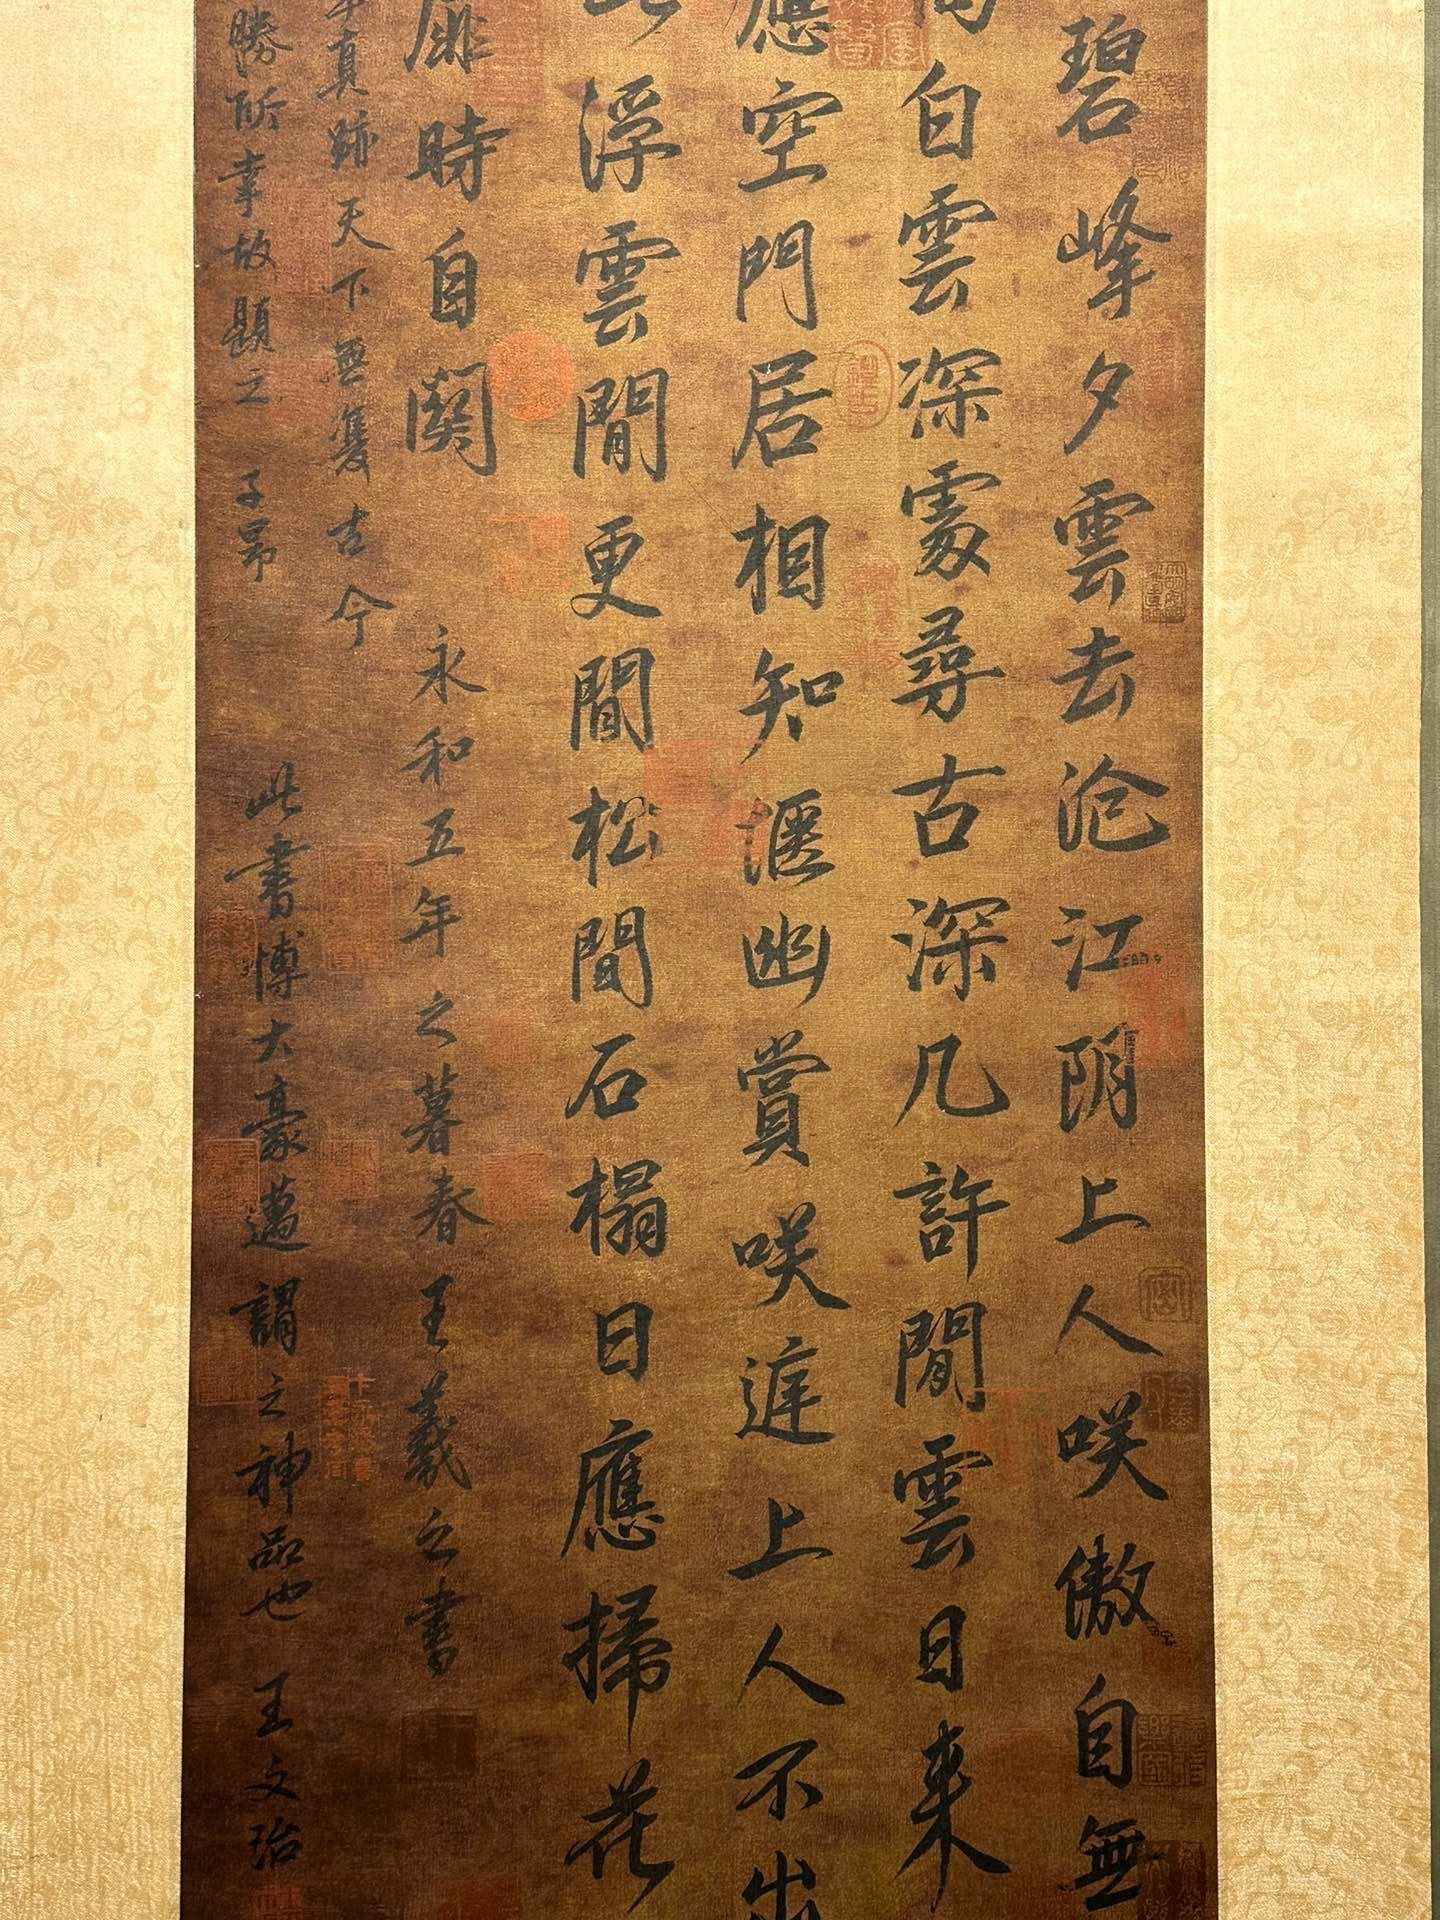 碧峰夕雲去沧江阴上人咲傲自無
白雲深處尋古深几許閒雲日来
應空門居相知遲幽賞咲遲上人不出
浮雲閒更閒松間石榻日應掃花
扉時自関
永和五年之暮春王羲之書
真跡天下無雙古今
勝所幸故題之 子昂
此書博大豪邁謂之神品也 王文治